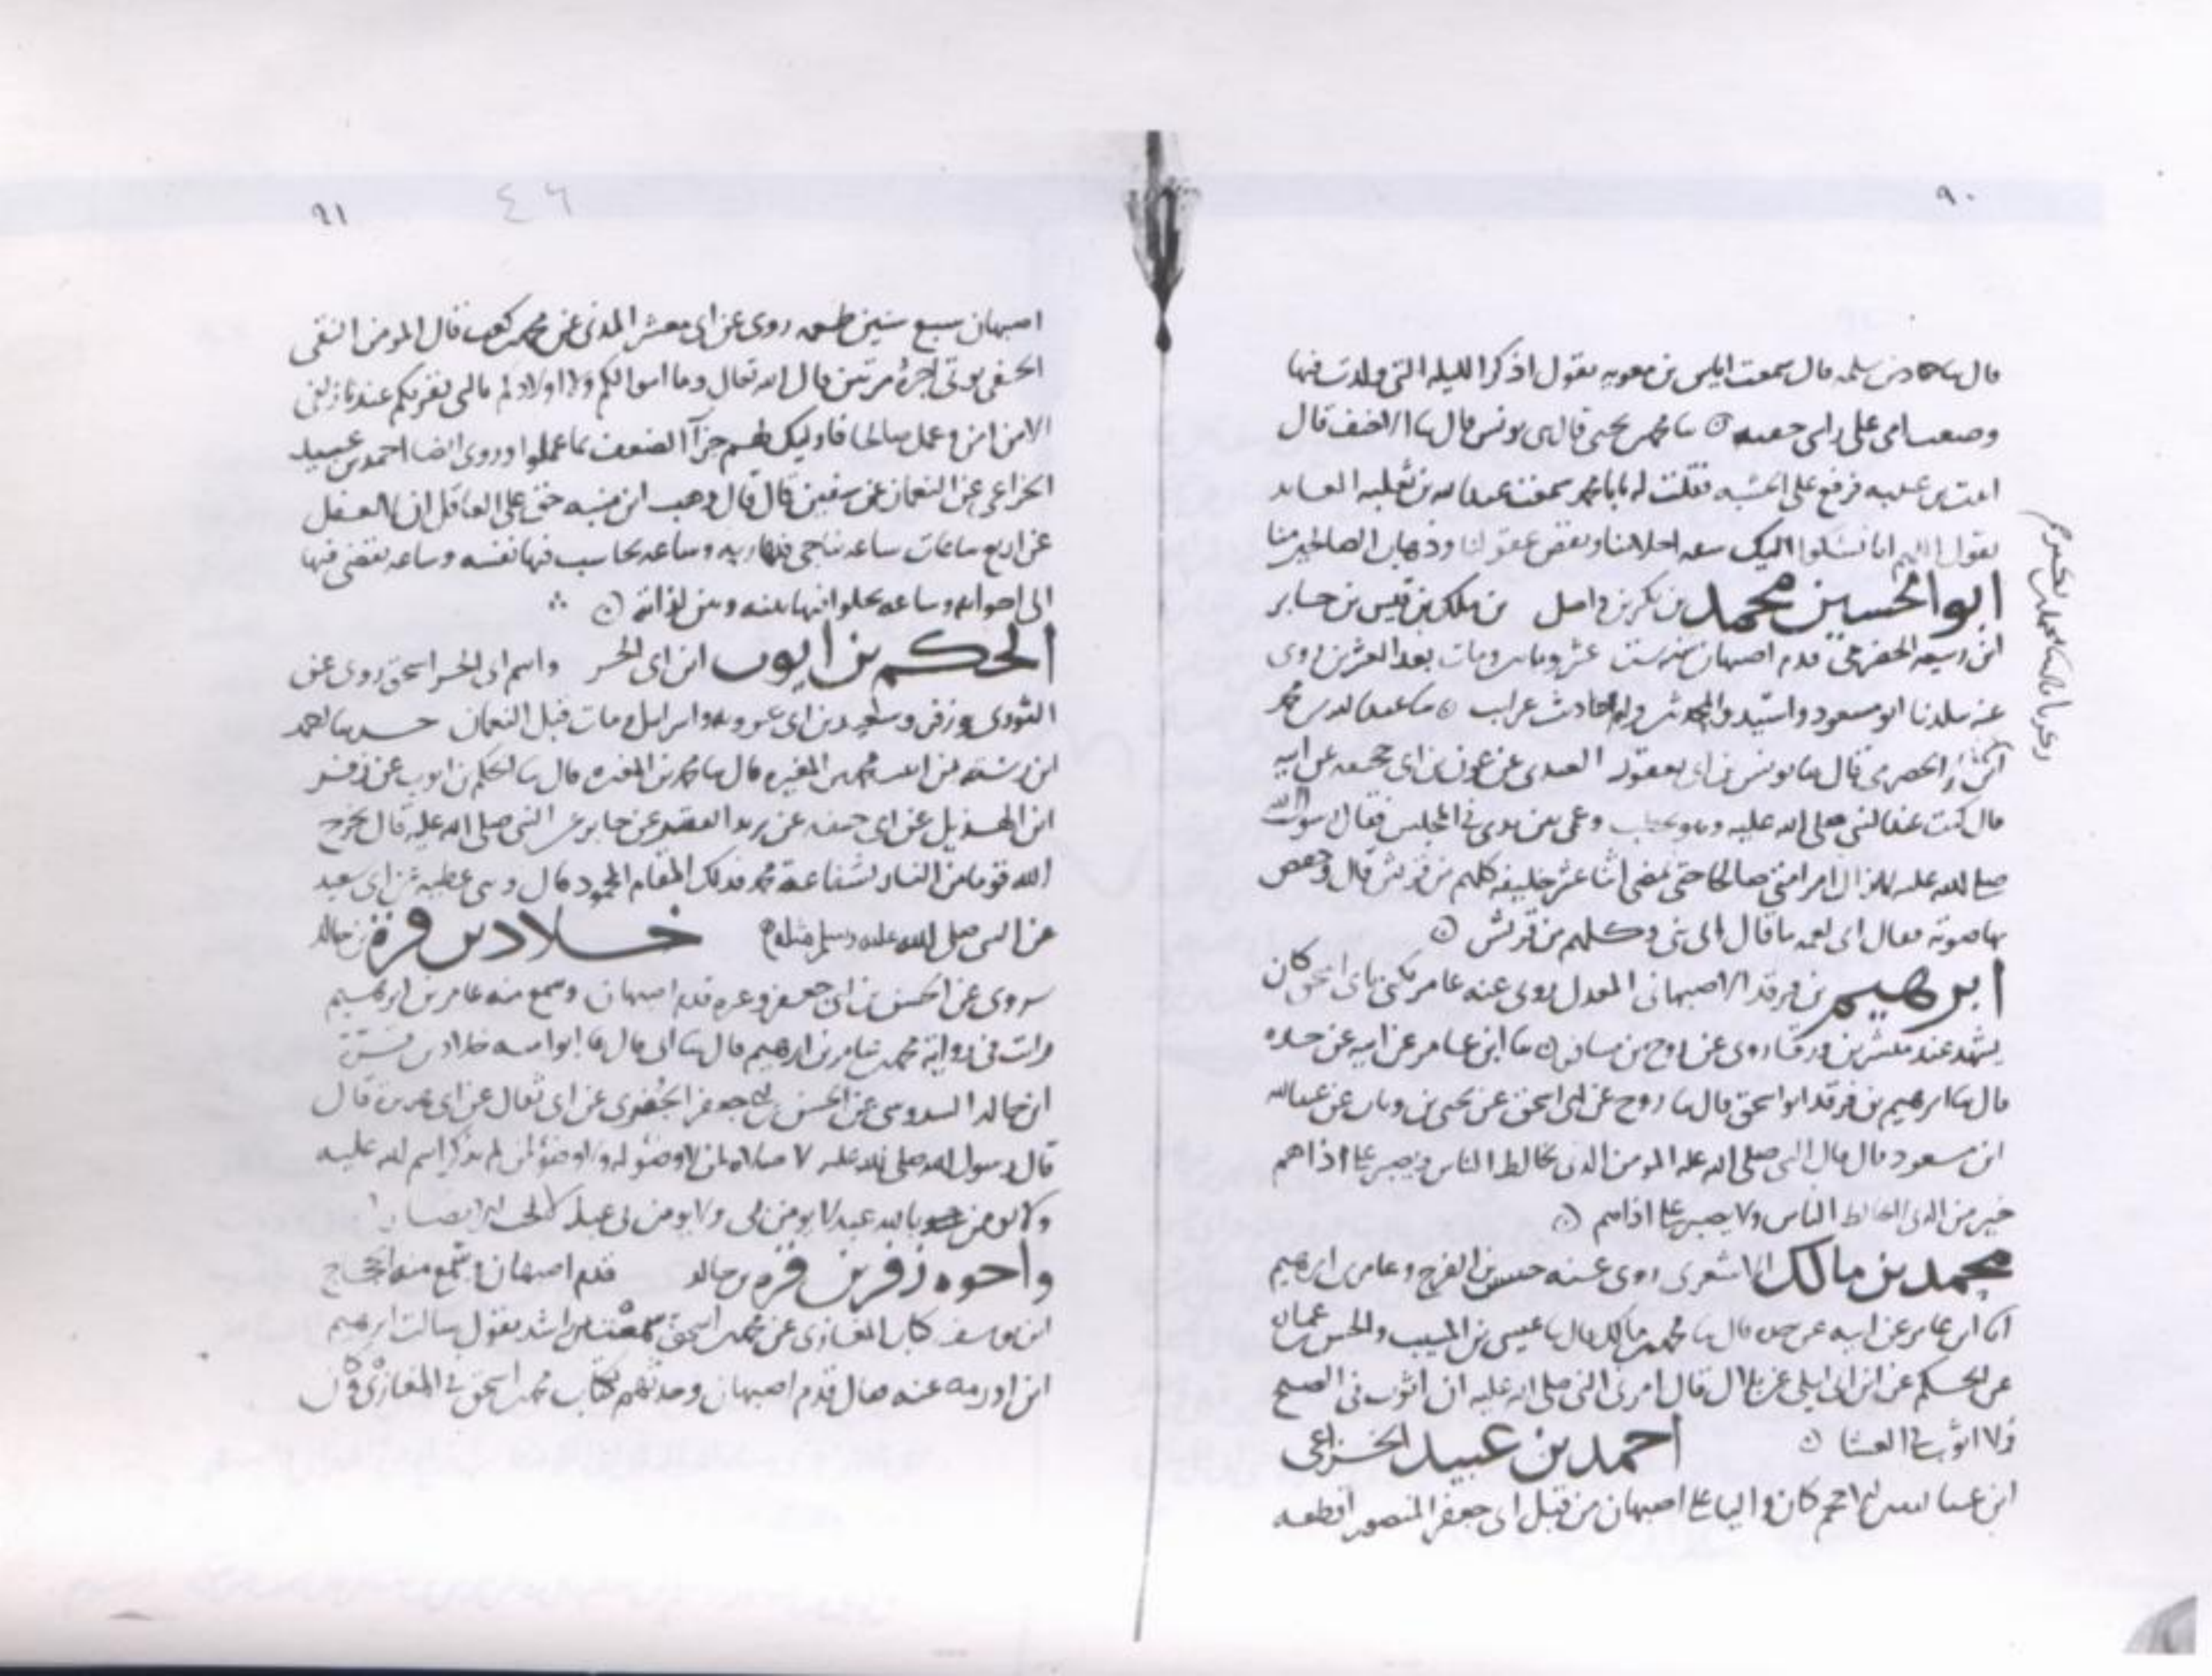 ٩٠
قال ثنا حماد بن سلمه قال سمعت اياس بن معويه يقول اذكر الليله التي ولدت فيها
وضعت امي على راسي جفنه ثنا محمد بن يحيى قال بن يونس قال ثنا الاخنف قال
فرفع على الخشبه فقلت له يابا محمد سمعت عبد الله بن ثعلبه
يقول اللهم انا نشكوا اليك سفه احلامنا ونقص عقولنا وذهاب الصالحين منا
ابو الحسين محمد بن بكر بن واصل بن ملك بن قيس بن جابر
ابن ربيعه الحضرمي قدم اصبهان سنه ست عشر ومايتين ومات بعد العشرين روى
عنه بلدنا ابو مسعود واسيد وله احاديث غراب ثنا عبد الله بن محمد
قال ثنا يونس بن ابي يعفور العبدي عن عون بن ابي جحيفه عن ابيه
قال كنت عند النبي صلى الله عليه وهو يخطب وعمي بين يدي في المجلس فقال رسول الله
صلى الله عليه لا يزال امر امتي صالحا حتى يمضي اثنا عشر خليفه كلهم من قريش قال وخفض
بها صوته فقال اي لعمي ما قال اي بني وكلهم من قريش
ابرهيم بن فرقد الاصبهاني المعدل روى عنه عامر يكنى بابي اسحق كان
يشهد عند مبشر بن ورقا روى عن روح بن مسافر ثنا ابن عامر عن ابيه عن جده
قال ثنا ابرهيم بن فرقد ابو اسحق قال ثنا روح عن ابي اسحق عن يحيى بن وثاب عن عبد الله
ابن مسعود قال قال النبي صلى الله عليه المومن الذي يخالط الناس ويصبر على اذاهم
خير من الذي لا يخالط الناس ولا يصبر على اذاهم
محمد بن مالك الاشعري روى عنه حسين بن الفرج وعامر بن ابرهيم
ثنا ابن عامر عن ابيه عن جده قال ثنا محمد بن مالك قال ثنا عيسى بن المسيب والحسن بن عماره
عن الحكم عن ابن ابي ليلى عن بلال قال امرني النبي صلى الله عليه ان اثوب في الصبح
ولا اثوب في العشا احمد بن عبيد الخزاعي
كان واليا على اصبهان من قبل ابي جعفر المنصور اقطعه
٩١
٤٦
اصبهان سبع سنين طعمه روى عن ابي معشر المدني عن محمد بن كعب قال المومن التقي
الحفي يوتى اجره مرتين قال الله تعالى وما اموالكم ولا اولادكم بالتي تقربكم عندنا زلفى
الا من امن وعمل صالحا فاوليك لهم جزآ الضعف بما عملوا وروى ايضا احمد بن عبيد
الخزاعي عن النعمان عن سفين قال قال وهب ابن منبه حق على العاقل ان لا يغفل
عن اربع ساعات ساعه يناجي فيها ربه وساعه يحاسب فيها نفسه وساعه يفضي فيها
الى اخوانه وساعه يخلوا فيها بينه وبين لذاته
الحكم بن ايوب ابن ابي الحر واسم ابي الحر اسحق روى عن
الثوري وزفر وسعيد بن ابي عروبه واسرايل ومات قبل النعمان حدثنا احمد
ابن رسته بن ابنه محمد بن المغيره قال ثنا محمد بن المغيره قال ثنا الحكم بن ايوب عن زفر
ابن الهذيل عن ابي حنيفه عن يزيد الفقير عن جابر عن النبي صلى الله عليه قال يخرج
الله قوما من النار بشفاعة محمد فذلك المقام المحمود قال وحدثني عطيه عن ابي سعيد
عن النبي صلى الله عليه وسلم مثله خلاد بن قرة بن خالد
يروى عن الحسن بن ابي جعفر وغيره قدم اصبهان وسمع منه عامر بن ابرهيم
رايت في رواية محمد بن عامر بن ابرهيم قال ثنا ابي قال ثنا ابو اميه خلاد بن قرة
ابن خالد السدوسي عن الحسن بن ابي جعفر الجفري عن ابي ثفال عن ابي هريره قال
قال رسول الله صلى الله عليه لا صلاة لمن لا وضو له ولا وضو لمن لم يذكر اسم الله عليه
ولا يومن بالله عبد لا يومن بي ولا يومن بي عبد لا يحب الانصار
واخوه زفر بن قره بن خالد قدم اصبهان وسمع منه الحجاج
ابن يوسف كتاب المغازي عن محمد بن اسحق سمعت ابن راشد يقول سالت ابرهيم
ابن اورمه عنه فقال قدم اصبهان وحدثهم بكتاب محمد بن اسحق في المغازي